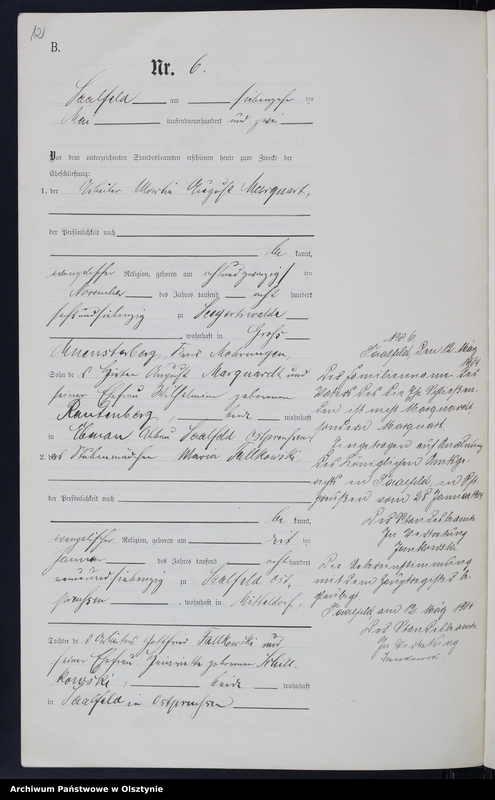 12
B.
Nr. 6.
Saalfeld am siebenzehn ten
Mai tausendneunhundert und zwei
Vor dem unterzeichneten Standesbeamten erschienen heute zum Zwecke der
Eheschließung:
1. der Arbeiter Martin August Marquart,
der Persönlichkeit nach
be kannt,
evangelischer Religion, geboren am achtundzwanzigs ten
November des Jahres tausend acht hundert
sechsundsiebenzig zu Seegertswalde
, wohnhaft in Groß
Muensterberg, Kreis Mohrungen,
Sohn des Hirten August Marquardt und
seiner Ehefrau Wilhelmine geborenen
Rautenberg, beide wohnhaft
in Abbau Saalfeld Ostpreußen
2. das Stubenmädchen Maria Falkowski
der Persönlichkeit nach
be kannt,
evangelischer Religion, geboren am ten
Januar des Jahres tausend acht hundert
neunundsiebenzig zu Saalfeld Ost-
preußen, wohnhaft in Mitteldorf,
Tochter des Arbeiters Falkowski und
seiner Ehefrau Henriette geborenen
beide wohnhaft
in Saalfeld in Ostpreußen
No. 6.
Saalfeld, den 12. März
1904
Der Familienname des
Vaters des die Ehe Schließen-
den ist nicht Marquardt
sondern Marquart.
Eingetragen auf Anordnung
des Königlichen Amtsge-
richts in Saalfeld in Ost-
preußen vom 28 Januar 1904
Der Standesbeamte
In Vertretung
Die Uebereinstimmung
mit dem Hauptregister be-
glaubigt
Saalfeld am 12. März 1904
Der Standesbeamte
In Vertretung
Archiwum Państwowe w Olsztynie